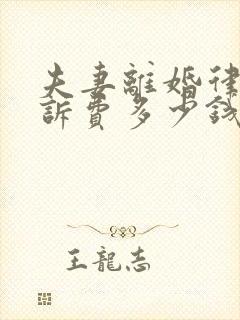 夫妻離婚律
訴費多少錢
王龍志